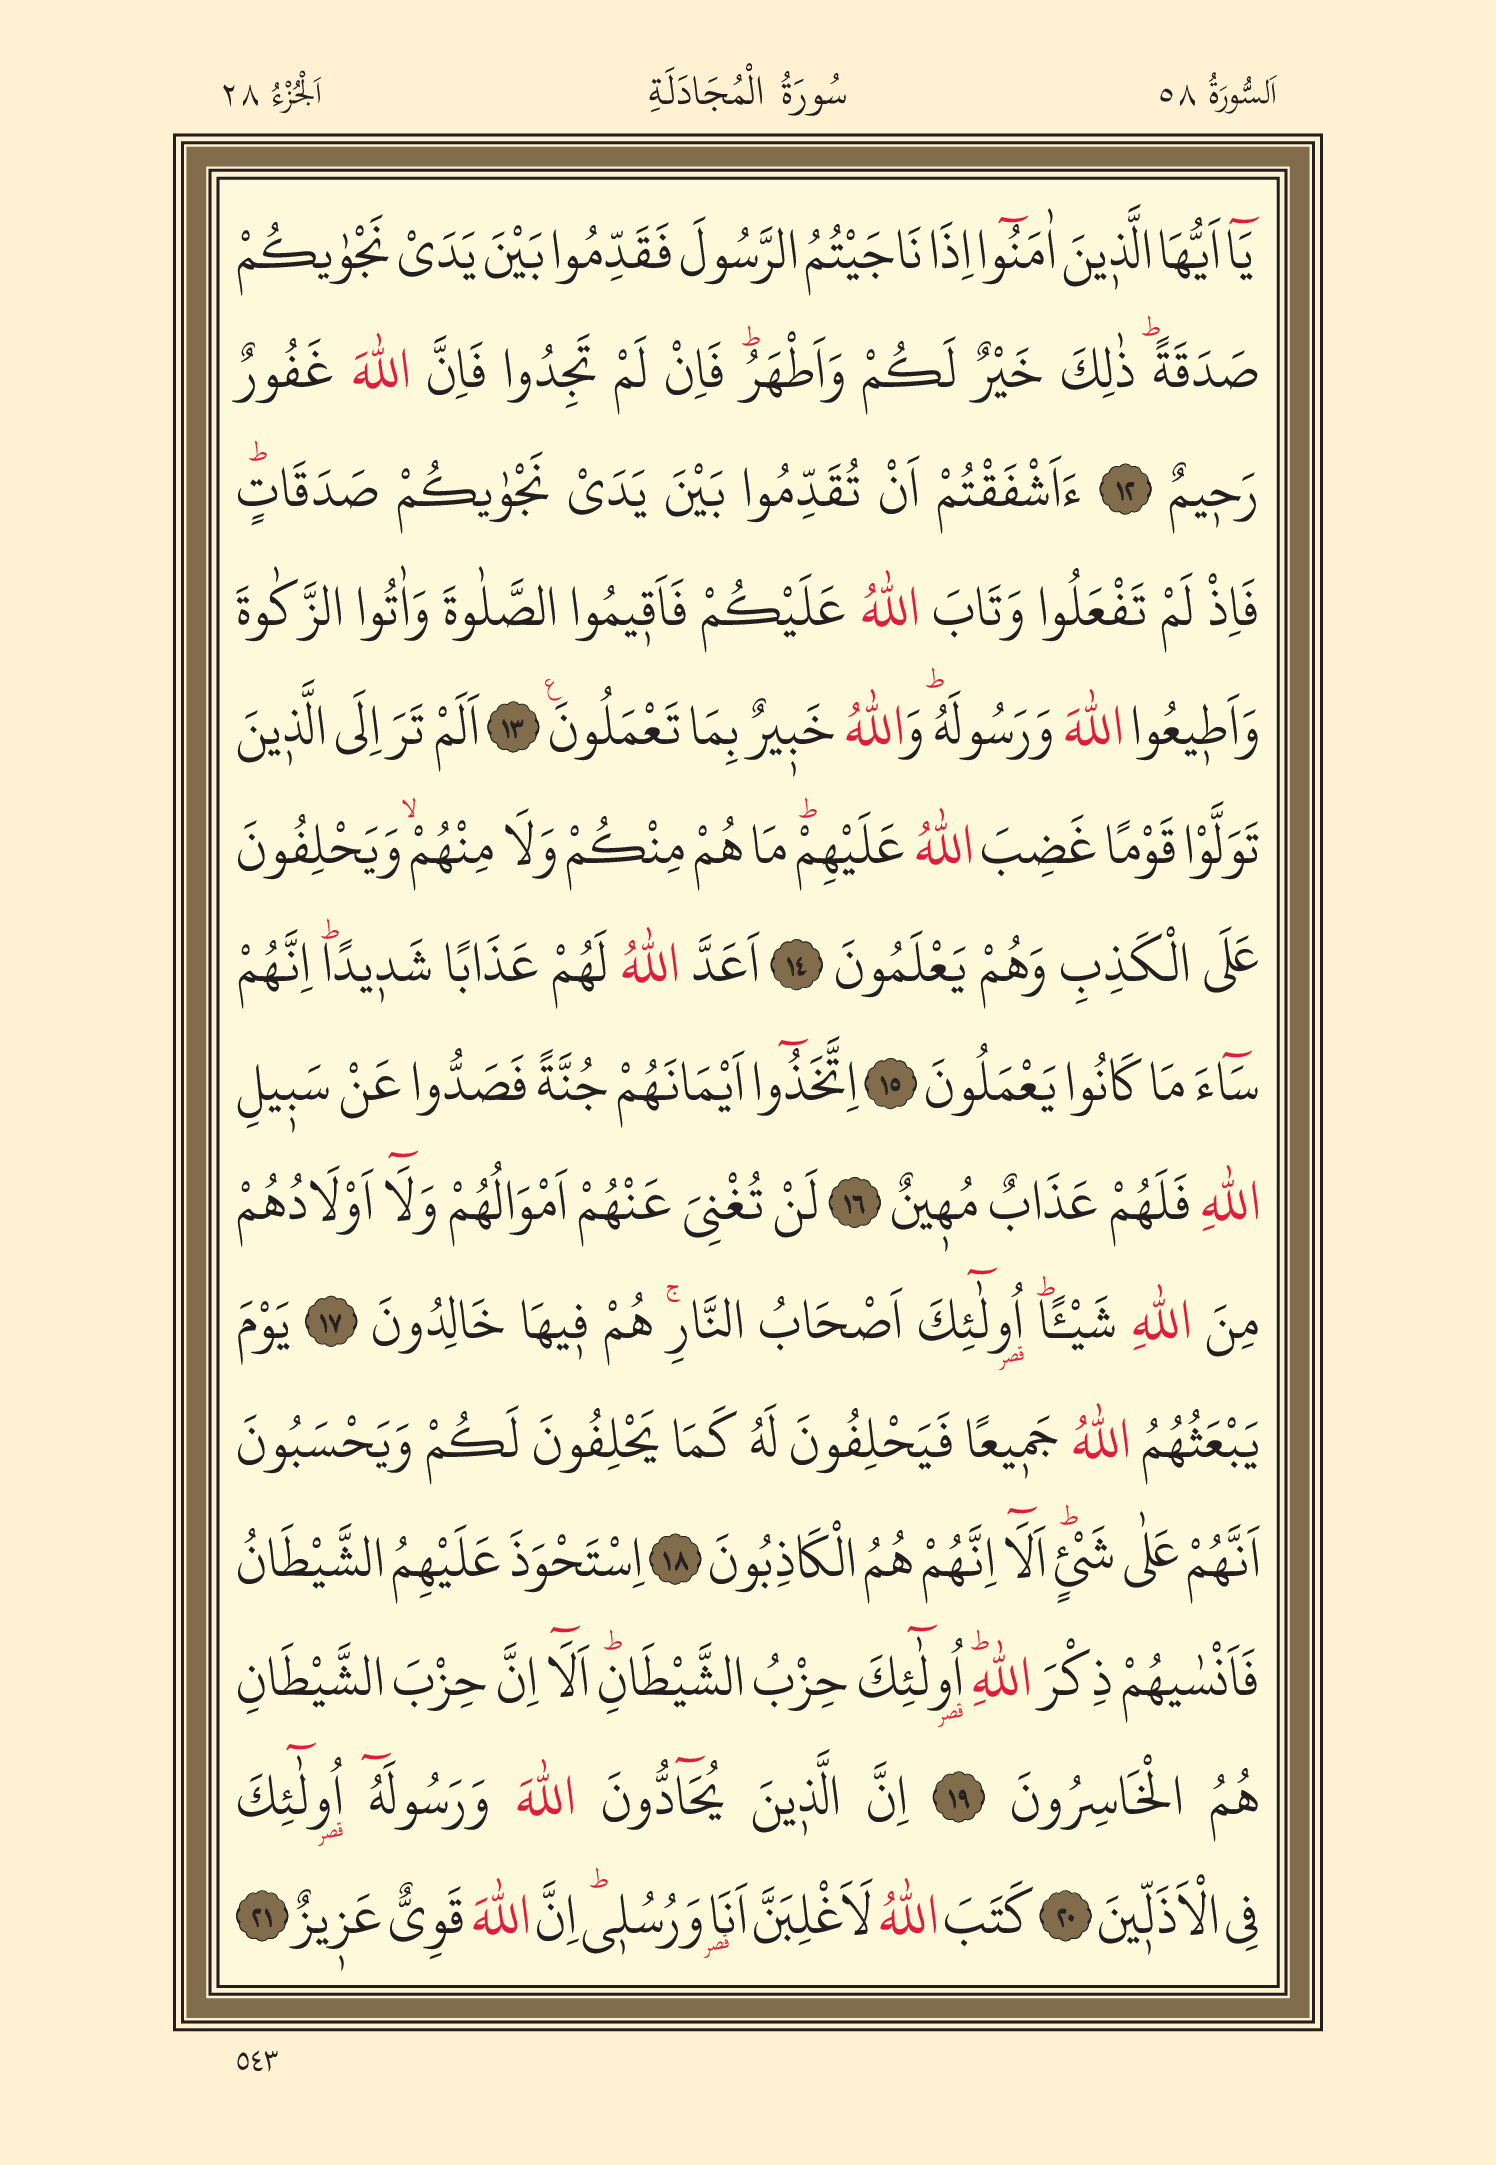 اَلسُّورَةُ ٥٨ سُورَةُ الْمُجَادَلَةِ اَلْجُزْءُ ٢٨
يَٓا اَيُّهَا الَّذ۪ينَ اٰمَنُٓوا اِذَا نَاجَيْتُمُ الرَّسُولَ فَقَدِّمُوا بَيْنَ يَدَىْ نَجْوٰيكُمْ
صَدَقَةًۜ ذٰلِكَ خَيْرٌ لَكُمْ وَاَطْهَرُۜ فَاِنْ لَمْ تَجِدُوا فَاِنَّ اللّٰهَ غَفُورٌ
رَح۪يمٌ ﴿١٢﴾ ءَاَشْفَقْتُمْ اَنْ تُقَدِّمُوا بَيْنَ يَدَىْ نَجْوٰيكُمْ صَدَقَاتٍۜ
فَاِذْ لَمْ تَفْعَلُوا وَتَابَ اللّٰهُ عَلَيْكُمْ فَاَق۪يمُوا الصَّلٰوةَ وَاٰتُوا الزَّكٰوةَ
وَاَط۪يعُوا اللّٰهَ وَرَسُولَهُۜ وَاللّٰهُ خَب۪يرٌ بِمَا تَعْمَلُونَ۟ ﴿١٣﴾ اَلَمْ تَرَ اِلَى الَّذ۪ينَ
تَوَلَّوْا قَوْمًا غَضِبَ اللّٰهُ عَلَيْهِمْۜ مَا هُمْ مِنْكُمْ وَلَا مِنْهُمْۙ وَيَحْلِفُونَ
عَلَى الْكَذِبِ وَهُمْ يَعْلَمُونَ ﴿١٤﴾ اَعَدَّ اللّٰهُ لَهُمْ عَذَابًا شَد۪يدًاۜ اِنَّهُمْ
سَٓاءَ مَا كَانُوا يَعْمَلُونَ ﴿١٥﴾ اِتَّخَذُٓوا اَيْمَانَهُمْ جُنَّةً فَصَدُّوا عَنْ سَب۪يلِ
اللّٰهِ فَلَهُمْ عَذَابٌ مُه۪ينٌ ﴿١٦﴾ لَنْ تُغْنِىَ عَنْهُمْ اَمْوَالُهُمْ وَلَٓا اَوْلَادُهُمْ
مِنَ اللّٰهِ شَيْـًٔاۜ اُو۬لٰٓئِكَ اَصْحَابُ النَّارِۚ هُمْ ف۪يهَا خَالِدُونَ ﴿١٧﴾ يَوْمَ
يَبْعَثُهُمُ اللّٰهُ جَم۪يعًا فَيَحْلِفُونَ لَهُ كَمَا يَحْلِفُونَ لَكُمْ وَيَحْسَبُونَ
اَنَّهُمْ عَلٰى شَىْءٍۜ اَلَٓا اِنَّهُمْ هُمُ الْكَاذِبُونَ ﴿١٨﴾ اِسْتَحْوَذَ عَلَيْهِمُ الشَّيْطَانُ
فَاَنْسٰيهُمْ ذِكْرَ اللّٰهِۜ اُو۬لٰٓئِكَ حِزْبُ الشَّيْطَانِۜ اَلَٓا اِنَّ حِزْبَ الشَّيْطَانِ
هُمُ الْخَاسِرُونَ ﴿١٩﴾ اِنَّ الَّذ۪ينَ يُحَٓادُّونَ اللّٰهَ وَرَسُولَهُٓ اُو۬لٰٓئِكَ
فِى الْاَذَلّ۪ينَ ﴿٢٠﴾ كَتَبَ اللّٰهُ لَاَغْلِبَنَّ اَنَا۬ وَرُسُل۪ىۜ اِنَّ اللّٰهَ قَوِىٌّ عَز۪يزٌ ﴿٢١﴾
٥٤٣